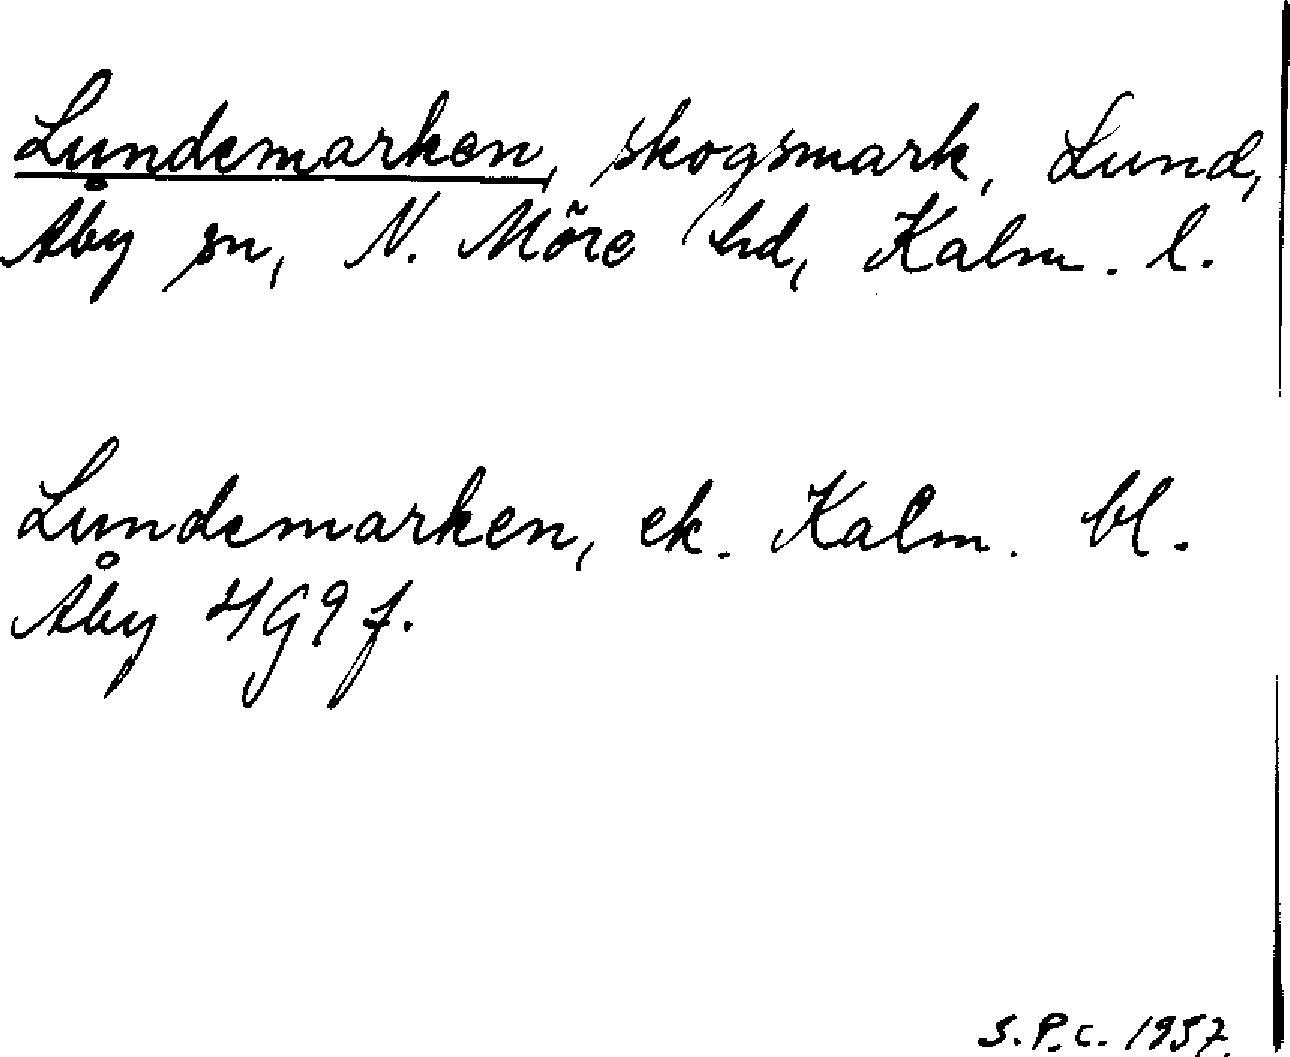 Lundemarken, skogsmark, Lund,
Åby sn, N. Möre hd, Kalm. l.
Lundemarken, ek. Kalm. bl.
Åby 4G9f.
S.P.C. 1957.